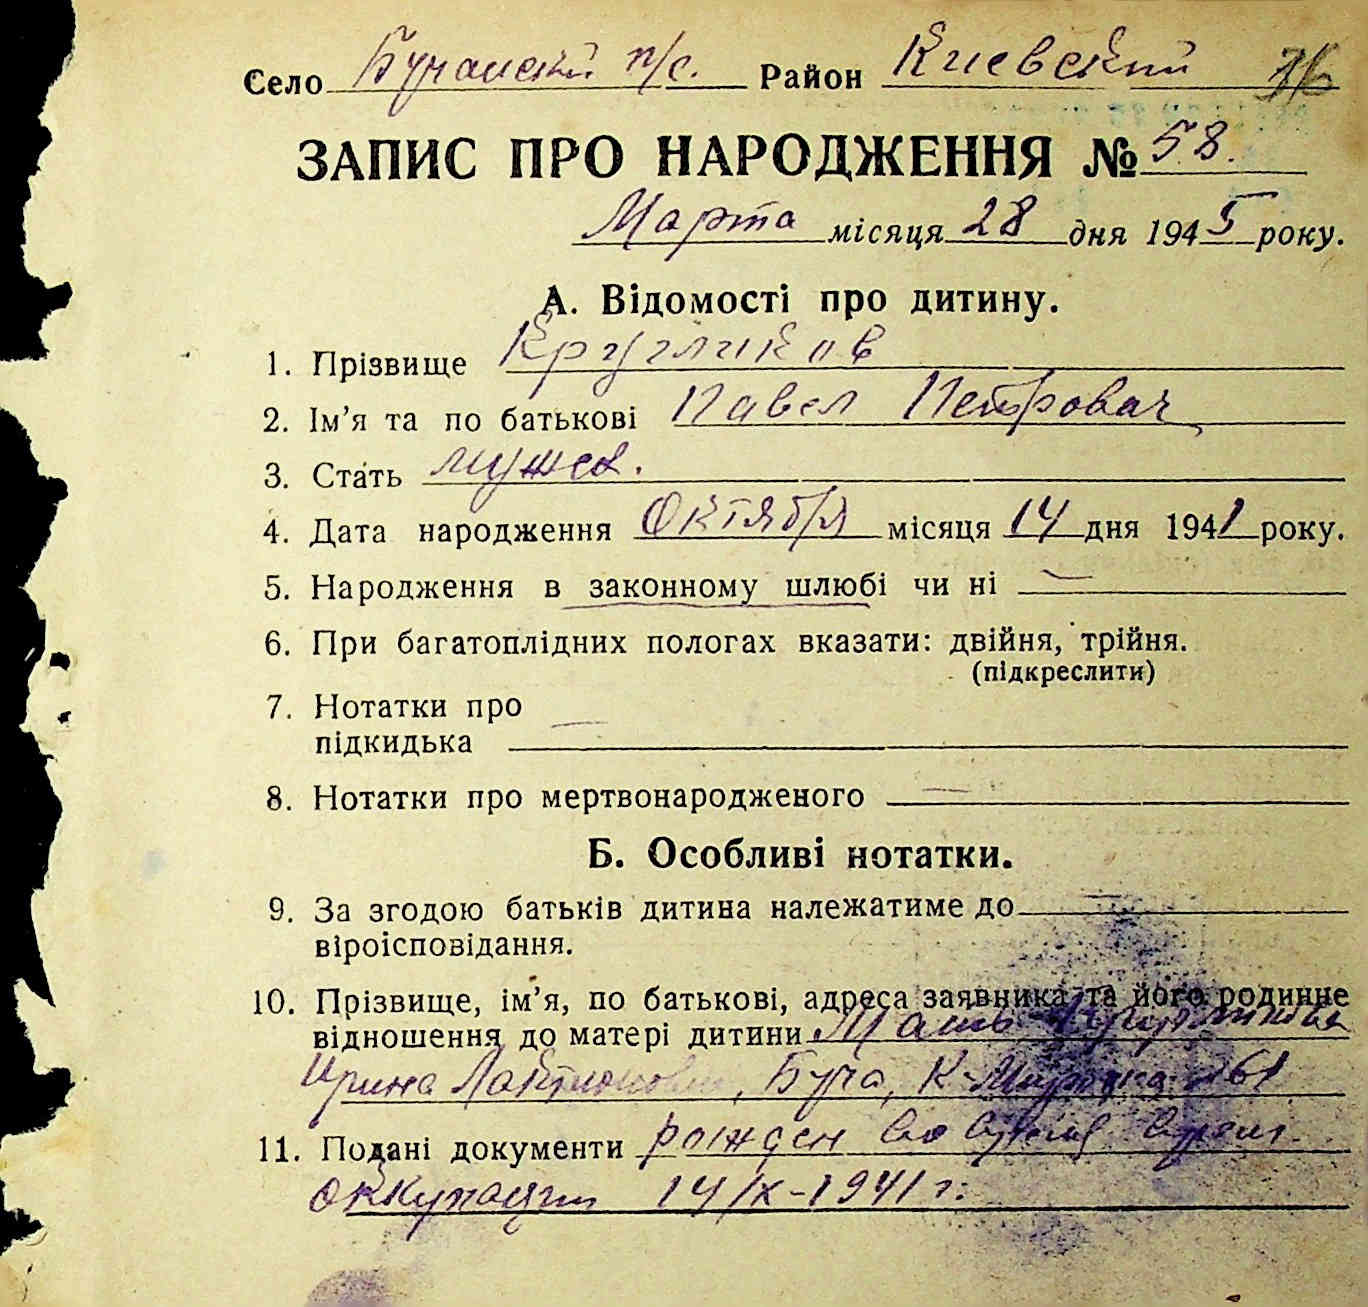 Село Бучанский п/с. Район Киевский 76
ЗАПИС ПРО НАРОДЖЕННЯ № 58.
Марта місяця 28 дня 1945 року.
А. Відомості про дитину.
1. Прізвище Кругликов
2. Ім’я та по батькові Павел Петрович
3. Стать мужск.
4. Дата народження Октября місяця 14 дня 1941 року.
5. Народження в законному шлюбі чи ні —
6. При багатоплідних пологах вказати: двійня, трійня.
(підкреслити)
7. Нотатки про
підкидька —
8. Нотатки про мертвонародженого —
Б. Особливі нотатки.
9. За згодою батьків дитина належатиме до
віроісповідання.
10. Прізвище, ім’я, по батькові, адреса заявника та його родинне
відношення до матері дитини Мать Кругликова
Ирина, Буча, К-
11. Подані документи рожден во время
оккупации 14/X-1941 г.